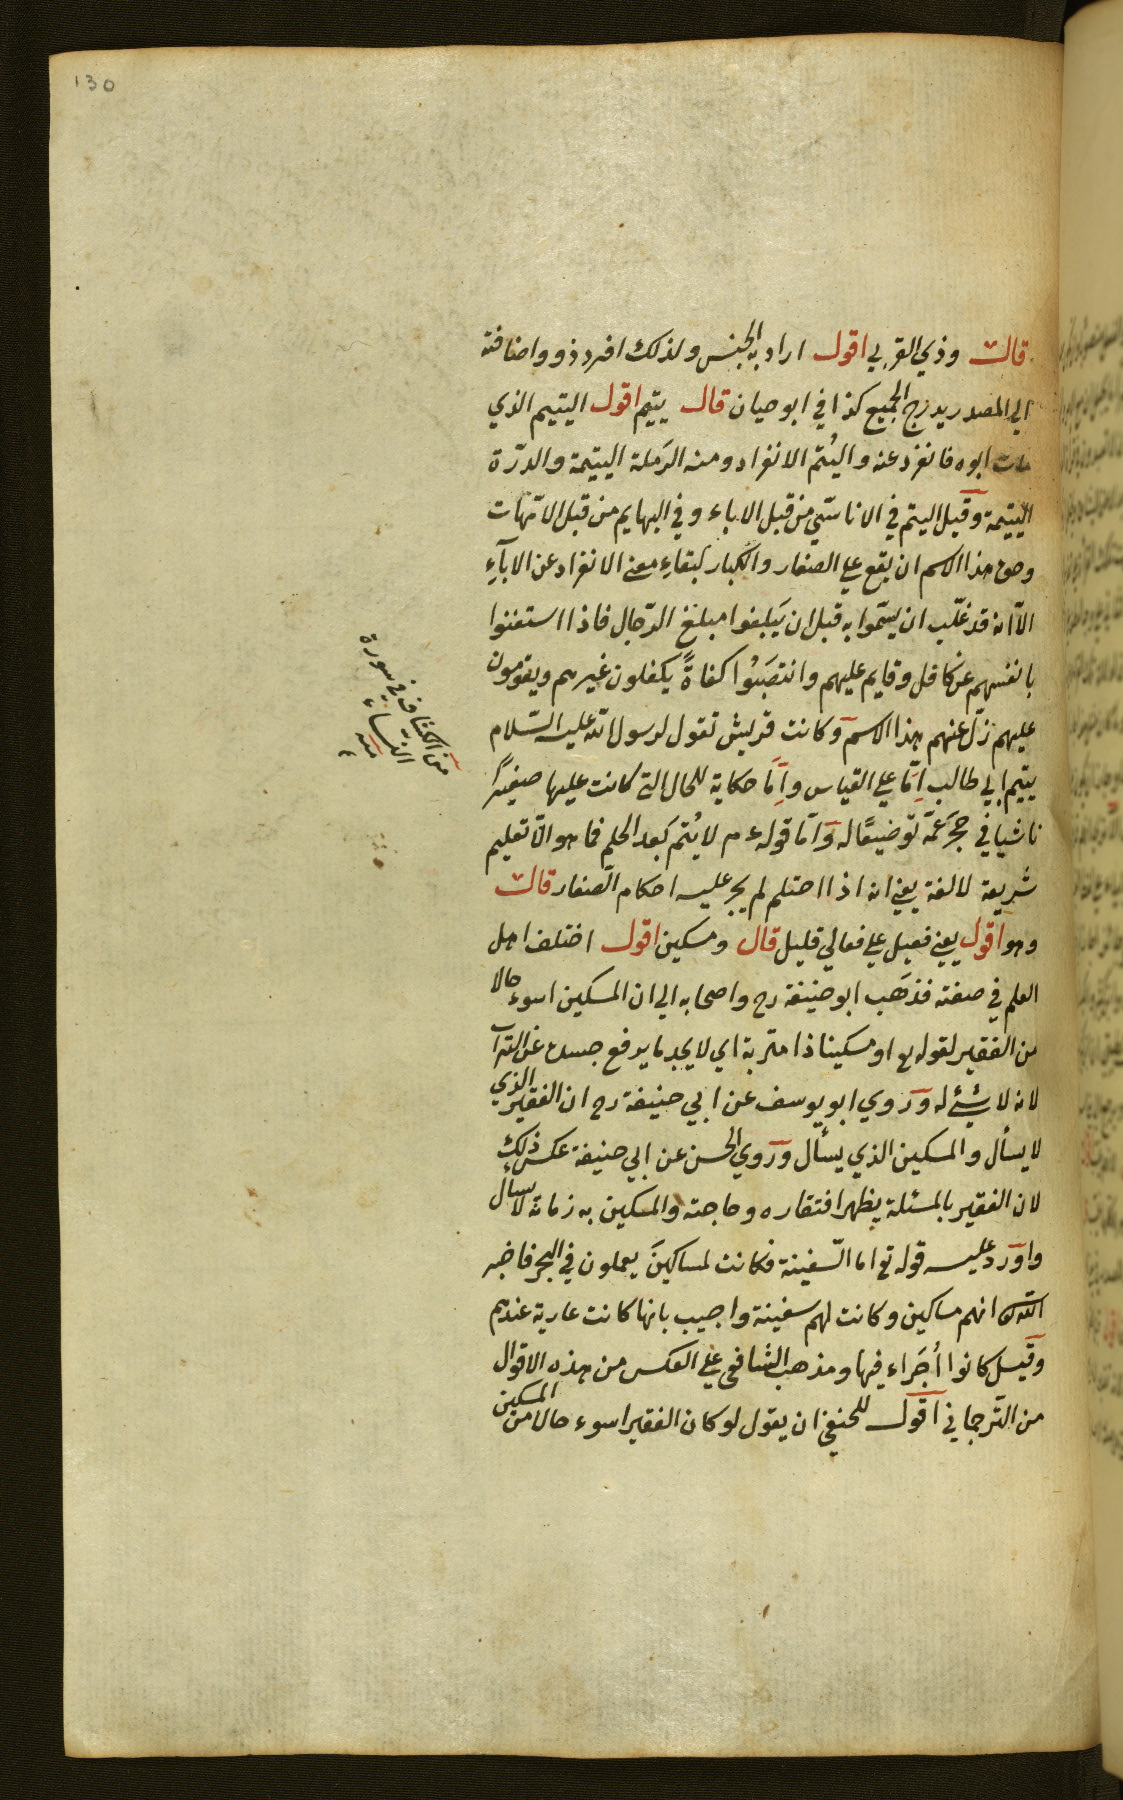 130
قال وذي القربي اقول اراد به الجنس ولذلك افرد ذو واضافته
الي المصدر يدرج الجميع كذا في ابو حيان قال يتيم اقول اليتيم الذي
مات ابوه فانفرد عنه واليُتم الانفراد ومنه الرَملة اليتيمة والدرّة
اليتيمة وقيل اليتم في الاناسّي من قبل الاباء وفي البهايم من قبل الامّهات
وحق هذا الاسم ان يقع علي الصغار والكبار لبقاءِ معني الانفراد عن الآباءِ
الاّ انه قد غلّب ان يسمّوا به قبل ان يَبلغوا مبلغ الرّجال فاذا استغنوا
بانفسهم عن كافل وقايم عليهم وانتصَبُوا كفاةً يكفلون غيرهم ويقومون
عليهم زلّ عنهم هذا الاسم وكانت قريش تقول لرسول الله عليه السّلام
يتيم ابي طالب اِمّا علي القياس واِمّا حكاية للحال التي كانت عليها صغيرًا
ناشيا في حجر عَمّه توضيعًا له وامّا قوله ع م لا يُتم بَعد الحلم فما هو الاّ تعليم
شريعة لا لغة يعني انه اذا احتلم لم يجر عليه احكام الصّغار قال
وهو اقول يعني فعيل علي فعالي قليل قال ومسكين اقول اختلف اهل
العلم في صفته فذهَب ابو حنيفة رح واصحابه الي ان المسكين اسوء حالا
من الفقير لقوله تع او مسكينا ذا متربة اي لا يجد ما يدفع جسده عن التراب
لانه لا شيئ له وروي ابو يوسف عن ابي حنيفة رح ان الفقير الذي
لا يسأل والمسكين الذي يسأل وروي الحسن عن ابي حنيفة عكس ذلك
لان الفقير بالمسئلة يظهر افتقاره وحاجته والمسكين به زمانة لا يسأل
واورد عليه قوله تع اما السّفينة فكانت لمساكينَ يعملون في البحر فاخبر
الله انهم مساكين وكانت لهم سفينة واجيب بانها كانت عارية عندهم
وقيل كانوا أجَراء فيها ومذهب الشافعي علي العكس من هذه الاقوال
من التّرجماني اقول للحنفي ان يقول لو كان الفقير اسوء حالا من المسكين
من الكشاف في سورة
النساء
منه